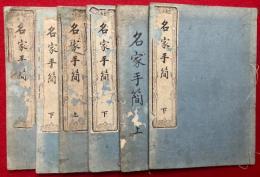 名家手簡 下
名家手簡 上
名家手簡 下
名家手簡 上
名家手簡 下
名家手簡